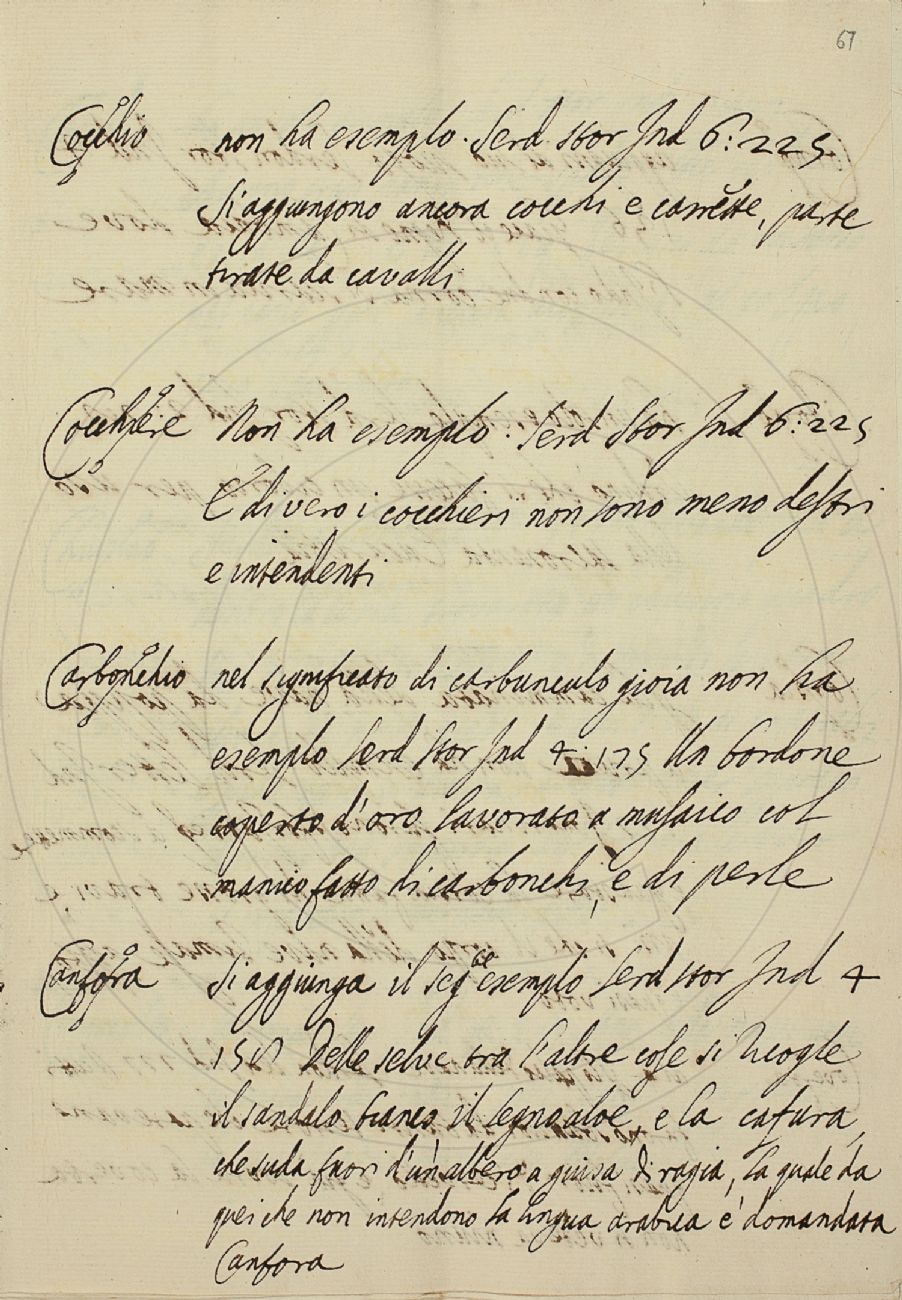 67
Cocchio non ha esemplo. Serd Stor Ind 6: 225
Si aggiungono ancora cocchi e carrette, parte
tirate da cavalli
Cocchiere Non ha esemplo. Serd Stor Ind 6: 225
E di vero i cocchieri non sono meno destri
e intendenti
Carbonchio nel significato di carbunculo gioia non ha
esemplo Serd Stor Ind 4: 175 Un bordone
coperto d'oro lavorato a musaico col
manico fatto di carbonchi, e di perle
Canfora Si aggiunga il seg.te esemplo Serd stor Ind 4
Delle selve tra l'altre cose si ricogle
il sandalo bianco il legno aloe, e la cafura,
che suda fuori d'un albero a guisa di ragia, la quale da
quei che non intendono la lingua arabica è domandata
Canfora